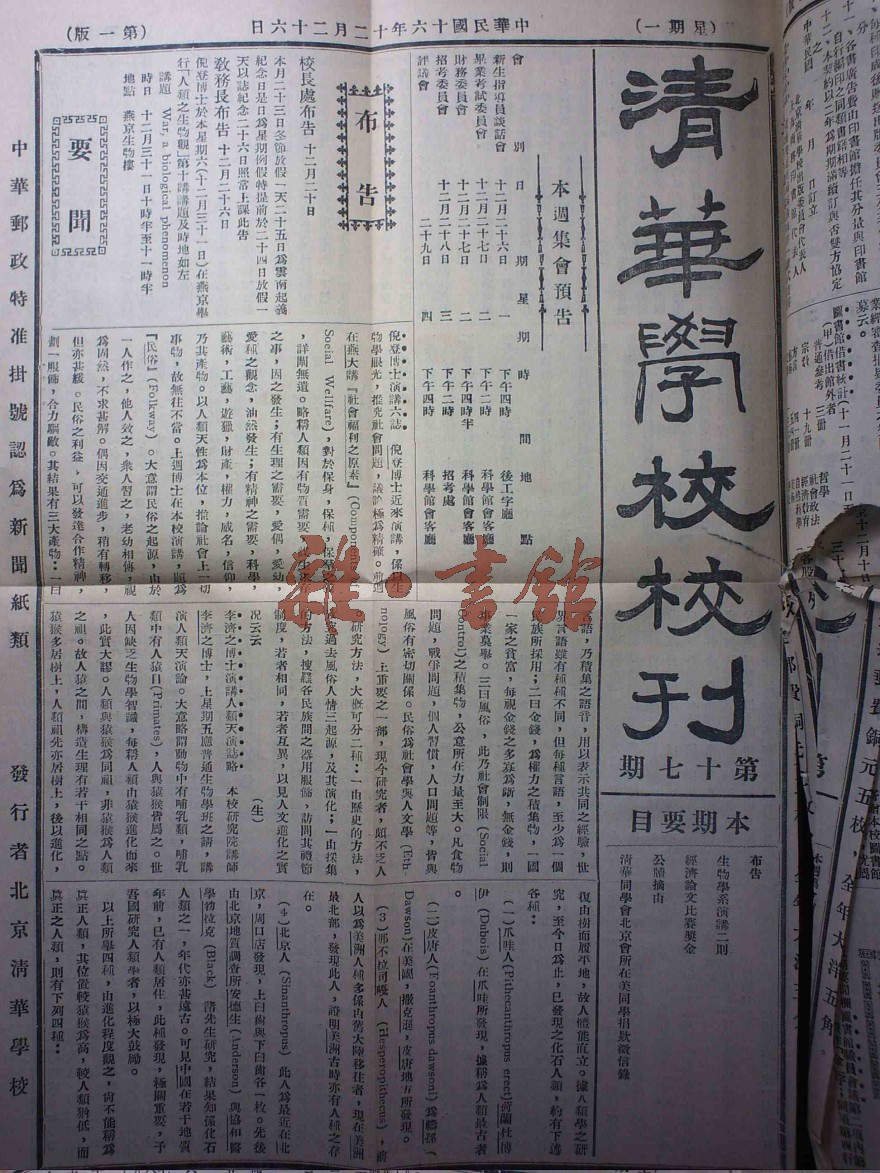 （星期一）
中華民國十六年十二月二十六日
（第一版）
清華學校校刊
第十七期
本期要目
布告
生物學系演講二則
經濟論文比賽獎金
公牘摘由
清華同學會北京會所在美同學捐欵徵信錄
本週集會預告
會別 日期 星期 時間 地點
新生指導員談話會 十二月二十六日 一 下午四時 後工字廳
畢業考試委員會 十二月二十七日 二 下午二時 科學館會客廳
財務委員會 十二月二十七日 二 下午四時半 科學館會客廳
招考委員會 十二月二十八日 三 下午二時 招考處
評議會 二十九日 四 下午四時 科學館會客廳
布告
校長處布告 十二月二十日
本月二十三日冬節放假一天二十五日爲雲南起義
紀念日是日爲星期例假特提前於二十四日放假一
天以誌紀念二十六日照常上課此告
敎務長布告 十二月二十六日
倪登博士於本星期六（十二月三十一日）在燕京學
行「人類之生物觀」第十講講題及時地如左
講題 War, a biological phenomenon
時日 十二月三十一日十時半至十一時半
地點 燕京生物樓
要聞
倪登博士演講六誌 倪登博士近來演講，係以生
物學眼光，推究社會問題，議論極爲精確。前週
在燕大講『社會福利之原素』(Components of
Social Wellfare)，對於保身，保種，保羣之
，詳閘無遺。略稱人類因有物質需要，謀生
之事，因之發生；有生理之需要，愛偶，愛幼，
愛種之觀念，油然發生；有精神之需要，科學，
藝術，工藝，遊獵，財產，權力，威名，信仰，
乃其產物。以人類天性爲本位，推論社會上一切
事物，故無往不當。上週博士在本校演講，題爲
『民俗』(Folkway)。大意謂民俗之起源，由於
一人作之，他人效之，衆人習之，老幼相傳，視
爲固然，不求甚解。偶因交通進步，稍有轉移，
但亦甚緩。民俗之利益，可以發達合作精神，
劃一服飾，合力驅敵。其結果有三大產物：一曰
言語，乃積集之語音，用以表示共同之經驗，世
界言語雖有種種不同，但每種言語，至少爲一個
民族所採用；二曰金錢，爲權力之積集物，一國
一家之貧富，每視金錢之多寡爲斷，無金錢，則
事業莫舉。三曰風俗，此乃社會制限 (Social
Control)之積集物，公意所在力量至大。凡食物
問題，戰爭問題，個人習慣，人口問題等，皆與
風俗有密切關係。民俗爲社會學與人文學 (Eth-
nology) 上重要之一部，現今研究者，頗不乏人
研究方法，大概可分二種：一由歷史的方法，
過去風俗人情三起源，及其演化；一由採集
的方法，搜羅各民族間之器用服飾，訪問其禮節
制度，若者相同，若者互異，以見人文進化之實
況云云 （生）
李濟之博士演講人類天演誌略 本校研究院講師
李濟之博士，上星期五應普通生物學班之請，講
演人類天演論。大意略謂動物中有哺乳類，哺乳
類中有人猿目(Primates)，人與猿猴皆屬之。世
人因缺乏生物學智識，每稱人類由猿猴進化而來
，此實大謬。人類與猿猴爲同祖，非猿猴爲人類
之祖。故人猿之間，構造生理有若干相同之點。
猿猴多居樹上，人類祖先亦居樹上，後以進化，
復由樹而履平地，故人體能直立。據人類學之研
究，至今日爲止，已發現之化石人類，約有下述
各種：
（一）爪哇人(Pithecanthropus erect)荷蘭杜博
伊 (Dubois) 在爪哇所發現，據稱爲人類最古者
。
（二）皮唐人(Eoanthropus dawsoni) 爲
Dawson)在英國，撒克遜，皮唐地方所發現。
（3）那不拉司嘎人 (Hesperopithecus)，前
人以爲美洲人種多係由舊大陸移住者，現在美洲
最北部，發現此人，證明美洲古時亦有人種之存
在。
（4）北京人 (Sinanthropus) 此人爲最近在北
京，周口店發現，上臼齒與下臼齒各一枚。先後
由北京地質調査所安德生(Anderson) 與協和醫
學勃拉克(Black) 諸先生研究，結果知係化石
人類之一，年代亦甚遠古。可見中國在若干地質
年前，已有人類居住，此種發現，極關重要，予
吾國研究人類學者，以極大鼓勵。
以上所舉四種，由進化程度觀之，尙不能稱爲
眞正人類，其位置較猿猴爲高，較人類猶低，而
眞正之人類，則有下列四種：
中華郵政特准掛號認爲新聞紙類 發行者北京清華學校
雜·書館